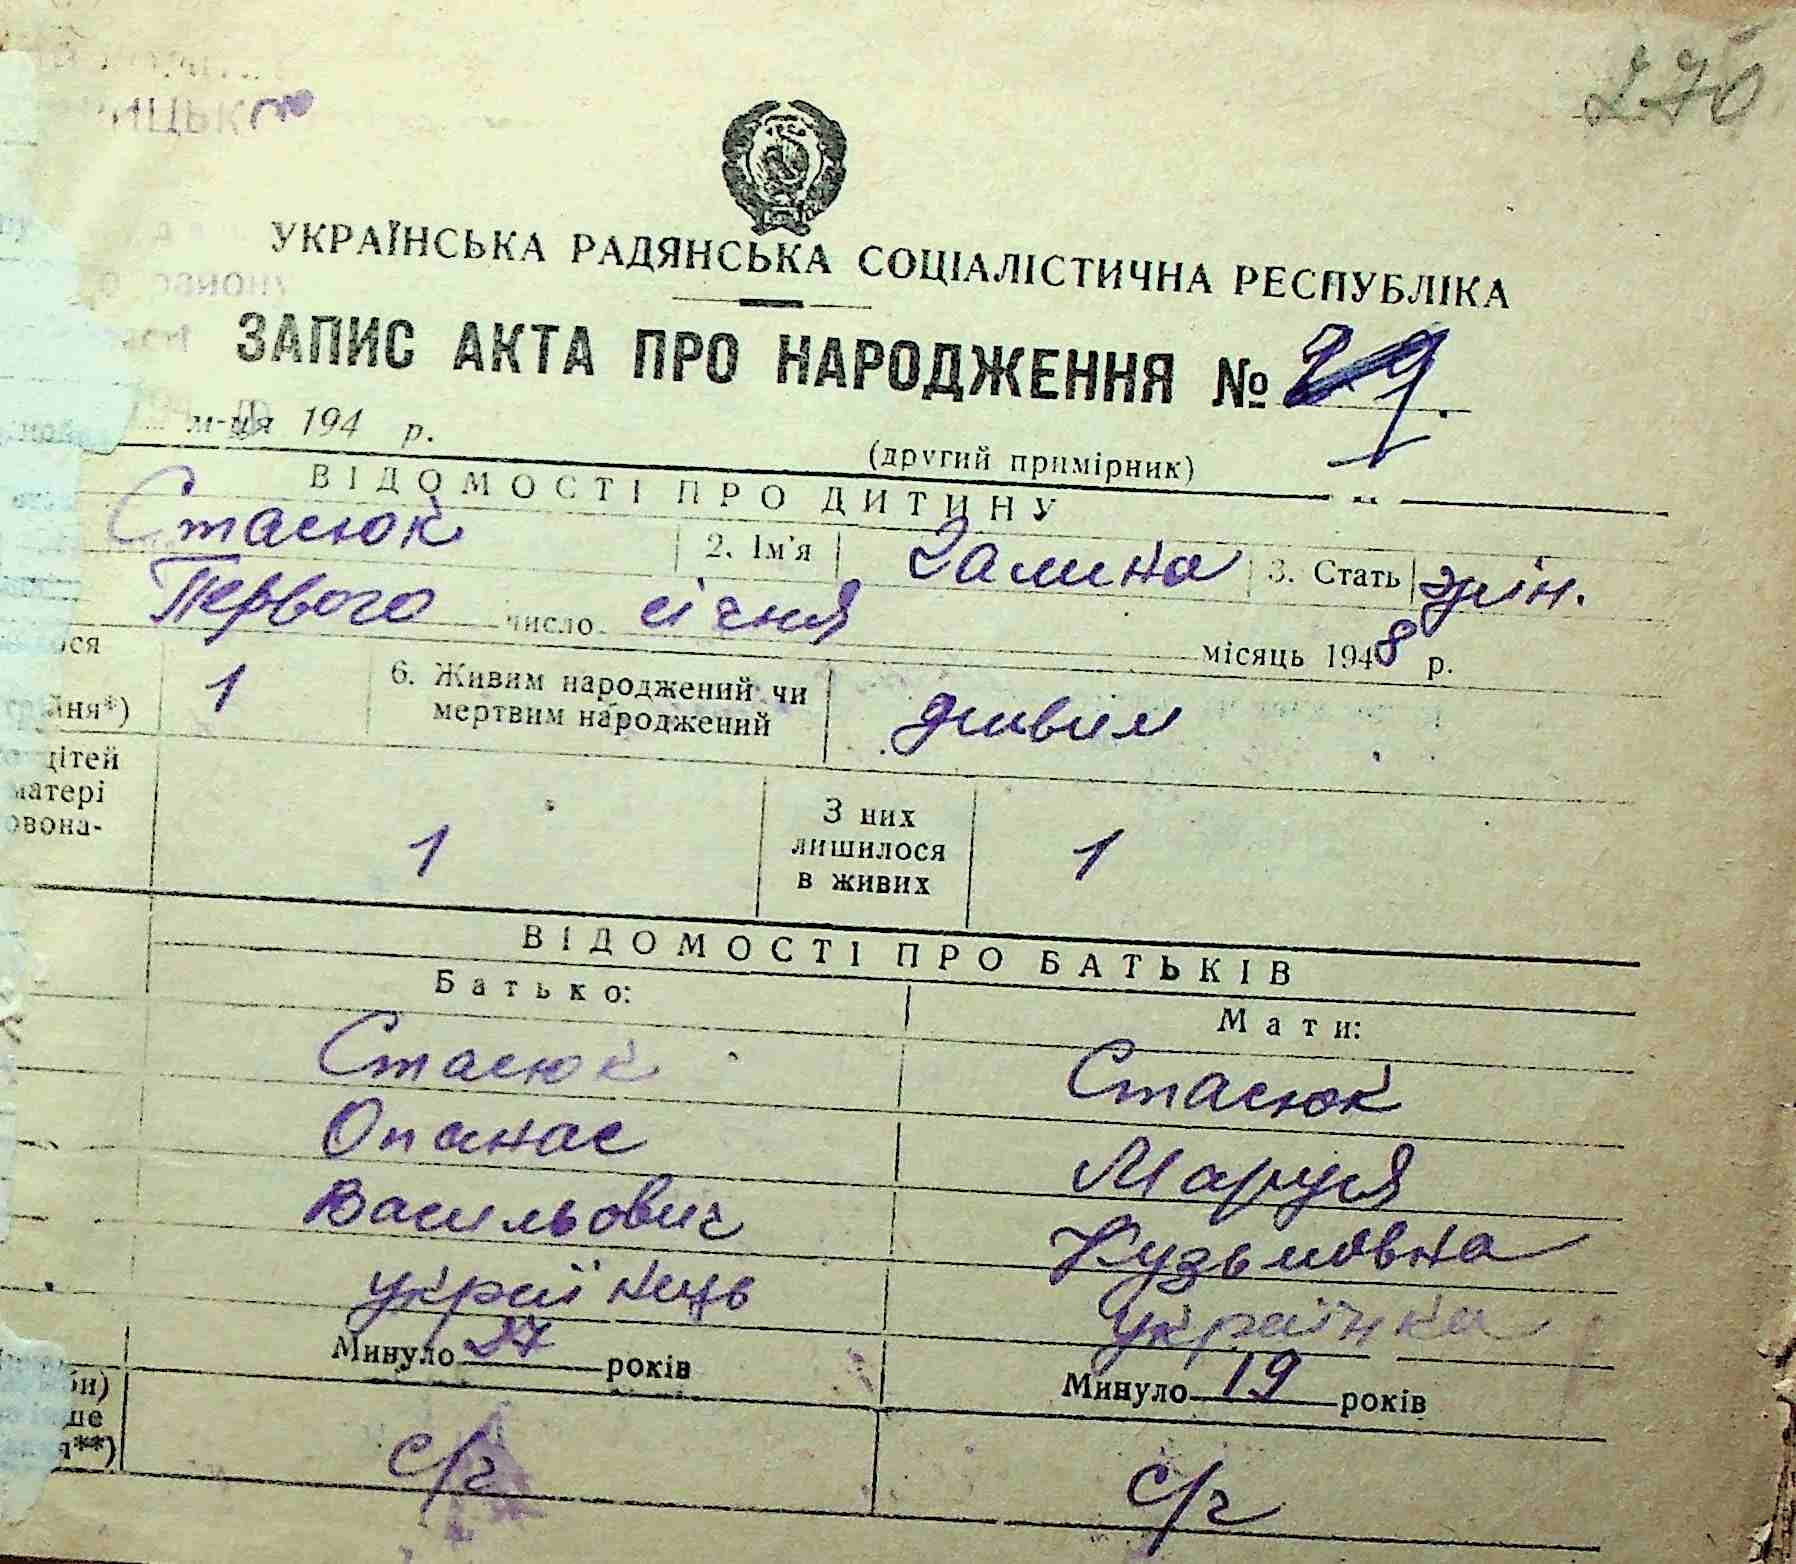 270
ИЦЬКО
УКРАЇНСЬКА РАДЯНСЬКА СОЦІАЛІСТИЧНА РЕСПУБЛІКА
ЗАПИС АКТА ПРО НАРОДЖЕННЯ №
м-ця 194 р.
(другий примірник)
ВІДОМОСТІ ПРО ДИТИНУ
Стасюк 2. Ім'я Галина 3. Стать жін.
Первого число січня місяць 1948 р.
1 6. Живим народжений чи мертвим народжений живим
йня*)
дітей
матері
овона-
1 З них лишилося в живих 1
ВІДОМОСТІ ПРО БАТЬКІВ
Батько: Мати:
Стасюк Стасюк
Опанас Маруся
Васильович Кузьмовна
українець українка
Минуло 27 років Минуло 19 років
с/г с/г